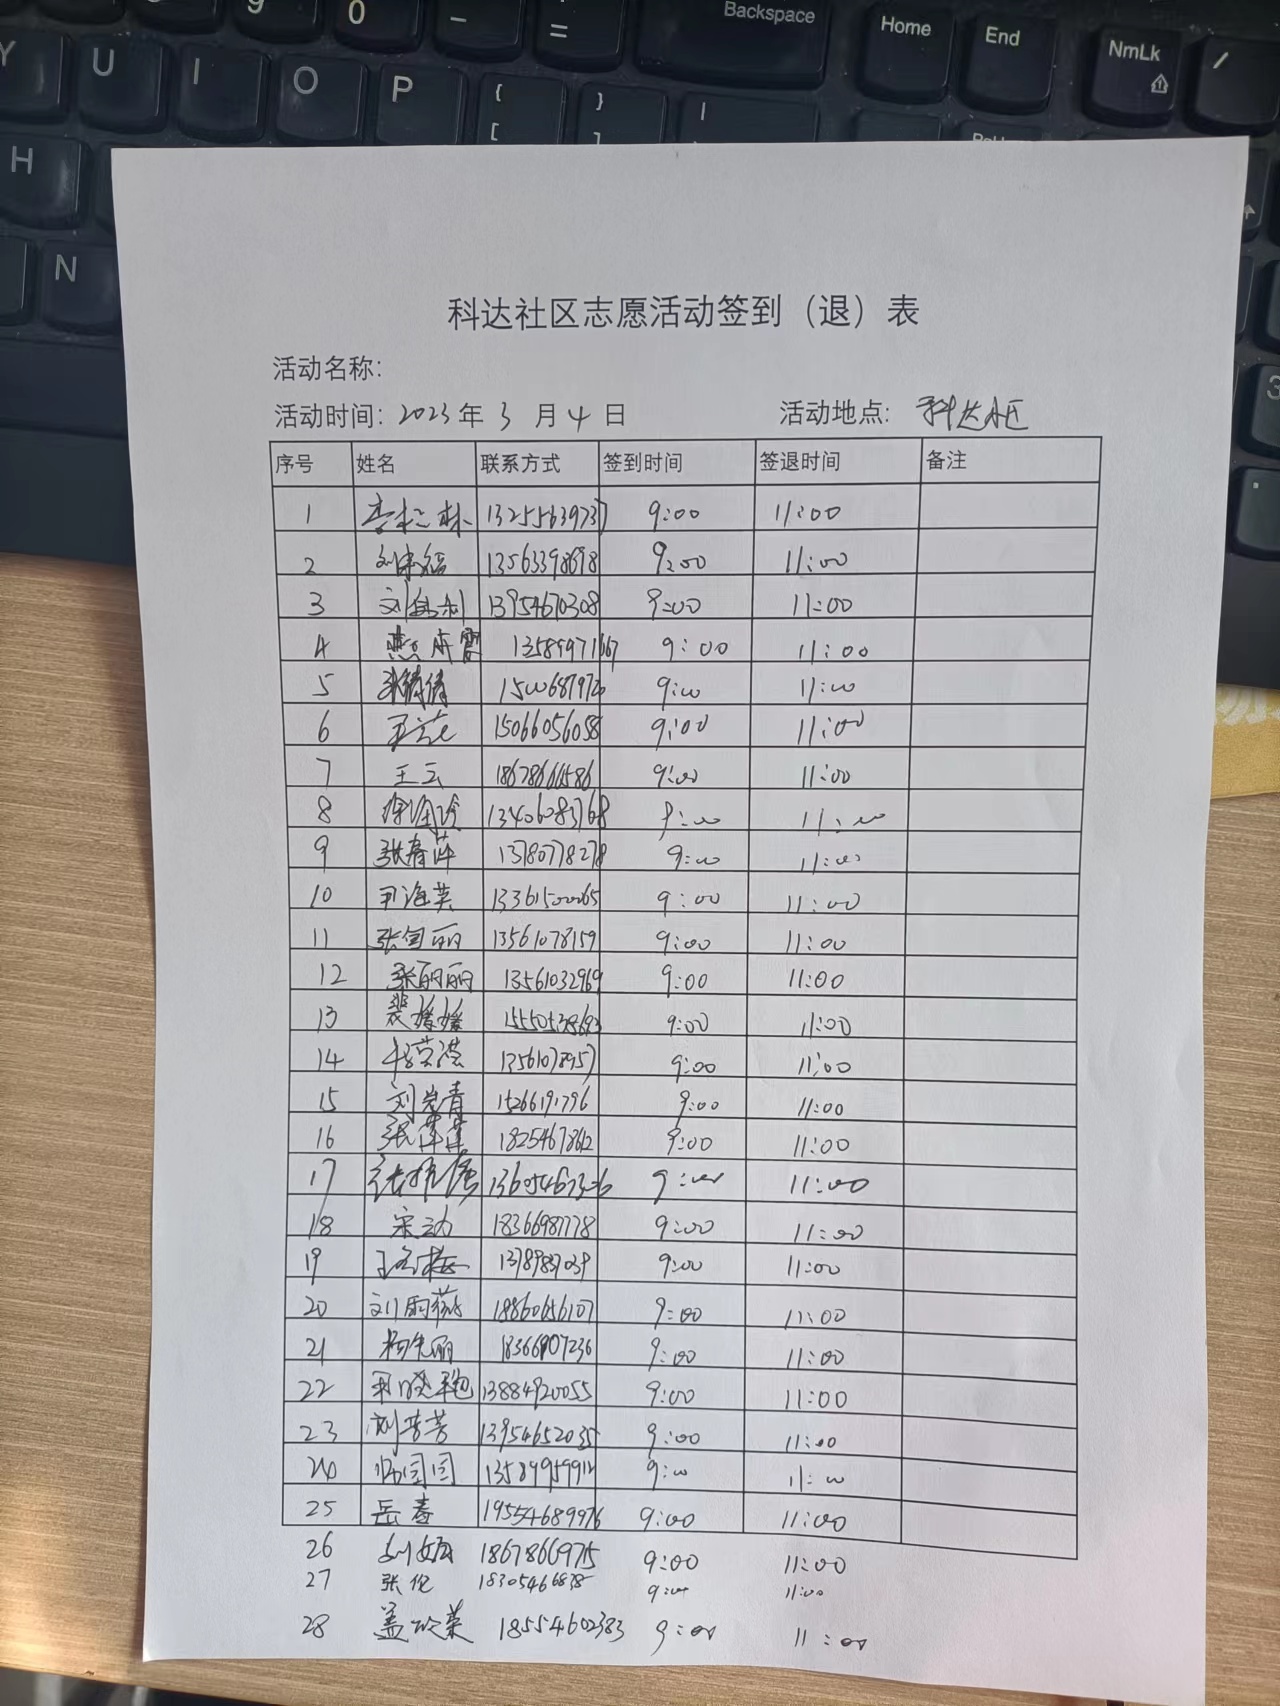 9 0 - =
Backspace Home End NmLk /
Y U I O P { [ } ] |
H
N
3
科达社区志愿活动签到（退）表
活动名称:
活动时间: 2023 年 3 月 4 日 活动地点: 科达社区
序号 姓名 联系方式 签到时间 签退时间 备注
1 13255639737 9:00 11:00
2 13563398698 9:00 11:00
3 13954670308 9:00 11:00
4 13589971667 9:00 11:00
5 张倩倩 9:00 11:00
6 15066056058 9:00 11:00
7 王云 18678661586 9:00 11:00
8 13406083768 9:00 11:00
9 张春萍 13780778278 9:00 11:00
10 王海英 13361500065 9:00 11:00
11 13561078159 9:00 11:00
12 张丽丽 13561032969 9:00 11:00
13 裴媛媛 9:00 11:00
14 13561078957 9:00 11:00
15 刘岩青 15266191796 9:00 11:00
16 张萍萍 18254678612 9:00 11:00
17 9:00 11:00
18 宋动 18366987778 9:00 11:00
19 13789837039 9:00 11:00
20 刘雨薇 18860656107 9:00 11:00
21 杨先丽 18366907236 9:00 11:00
22 13884920055 9:00 11:00
23 刘芳芳 13954652035 9:00 11:00
24 13589959912 9:00 11:00
25 岳春 19554689976 9:00 11:00
26 18678669715 9:00 11:00
27 张伦 18305466838 9:00 11:00
28 盖改荣 18554602383 9:00 11:00